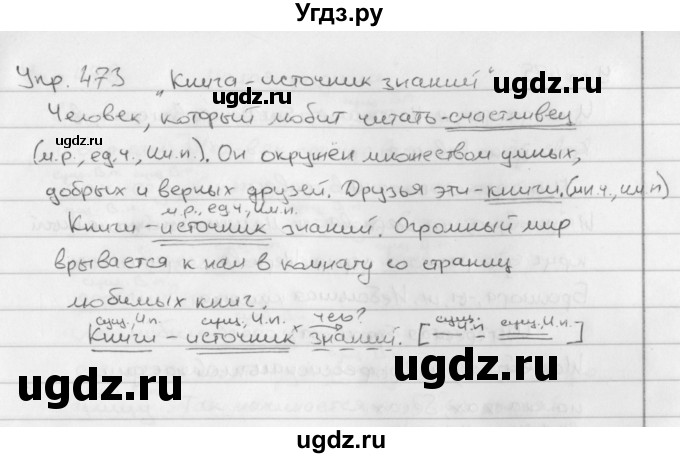 Угдз.ру
Упр. 473 "Книга - источник знаний"
ugdz.ru
ugdz.ru
Человек, который любит читать - счастливец
ugdz.ru
(м.р., ед.ч., Им.п.). Он окружён множеством умных,
добрых и верных друзей. Друзья эти - книги. (мн.ч., им.п)
м.р., ед.ч, Им.п.
Книги - источник знаний. Огромный мир
ugdz.ru
ugdz.ru
врывается к нам в комнату со страниц
ugdz.ru
любимых книг.
сущ., И.п. сущ., И.п. х чего? сущ., И.п. сущ., И.п.
Книги - источник знаний. [ - ]
ugdz.ru
ugdz.ru
ugdz.ru